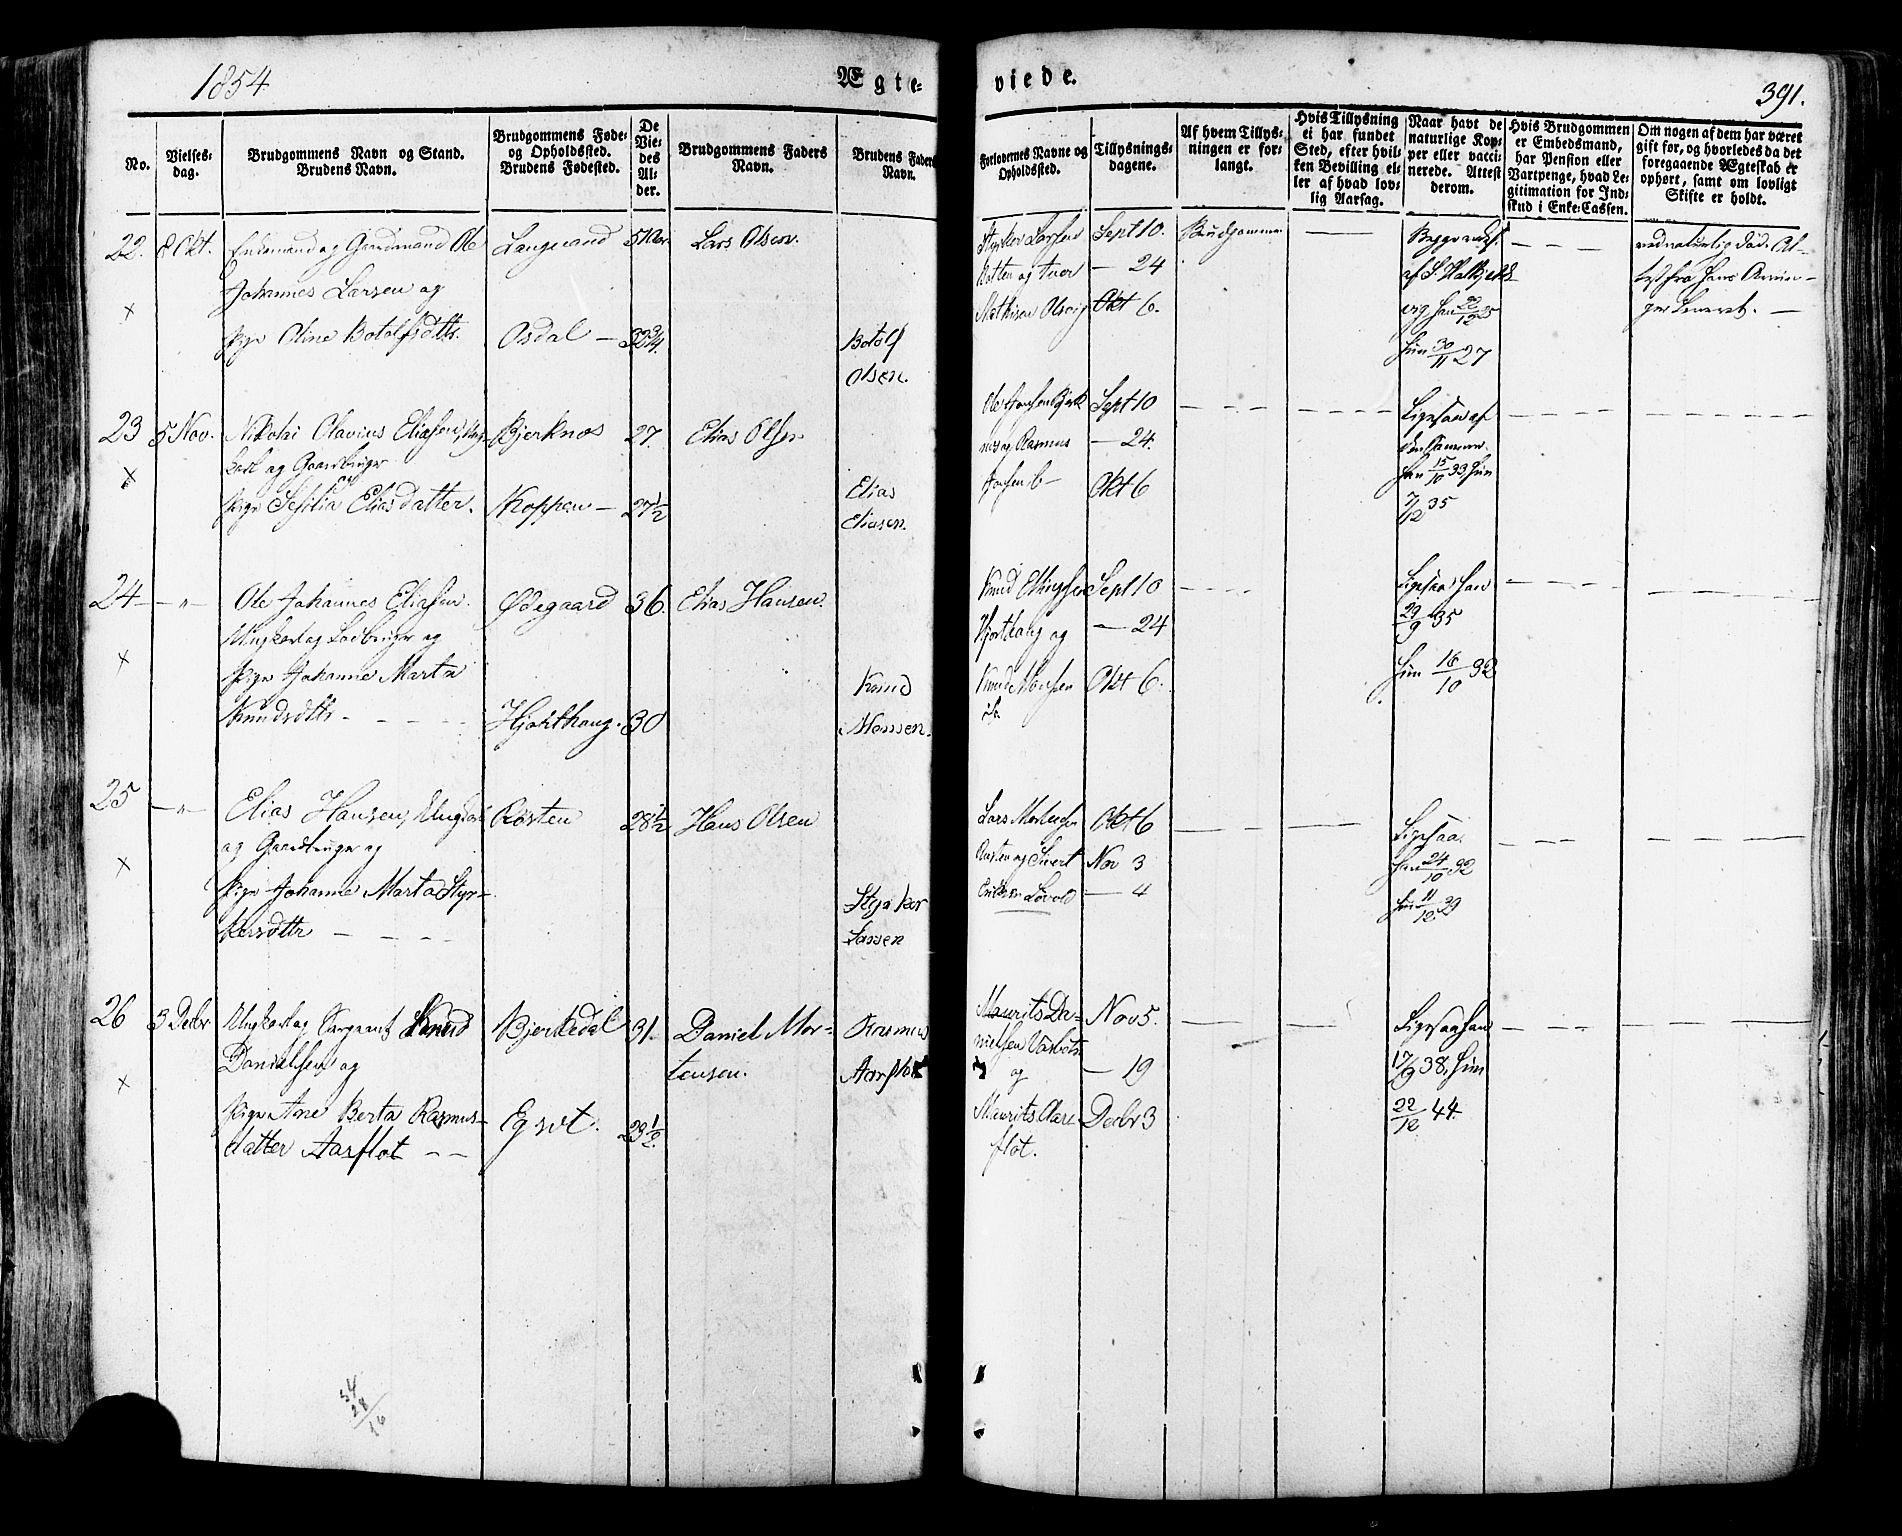 1854
Ægte-
viede.
391.
No.
Vielses-
dag.
Brudgommens Navn og Stand.
Brudens Navn.
Brudgommens Føde-
og Opholdssted.
Brudens Fødested.
De
Vie-
des
Al-
der.
Brudgommens Faders
Navn.
Brudens Faders
Navn.
Forlovernes Navne og
Opholdssted.
Tillysnings-
dagene.
Af hvem Tillys-
ningen er for-
langt.
Hvis Tillysning
ei har fundet
Sted, efter hvil-
ken Bevilling el-
ler af hvad lov-
lig Aarsag.
Naar havt de
naturlige Kop-
per eller vacci-
nerede. Attest
derom.
Hvis Brudgommen
er Embedsmand,
har Pension eller
Vartpenge, hvad Le-
gitimation for Ind-
skud i Enke-Cassen.
Om nogen af dem har været
gift før, og hvorledes da det
foregaaende Ægteskab er
ophørt, samt om lovligt
Skifte er holdt.
22. 8 Okt. Enkemand og Gaardmand Ole
Johannes Larsen og
Pige Oline Botolfsdttr.
Osdal — 32 3/4.
Lars Olsen.
Botolf
Olsen.
Styrker Larsen
Botten og Iver
Mathisen Osvig
Sept 10.
— 24
Okt 6.
Brudgommen
Begge vacs.
af S. Walkjels
vig, han 22/12 25
hun 30/11 27
ved naturlig Død. At-
test fra hans Arvin-
ger leveret. —
23 5 Nov. Nikolai Olavius Eliassen, Ung-
karl og Gaardbruger
og
Pige Elias datter.
Bjerknes 27. Elias Olsen
Koppen — 27 1/2
Elias
Eliasen.
nes og Rasmus
Sept 10
— 24.
Okt 6
Ligesaa af
den Samme
han 15/10 33, hun
7/12 35
24 — " — Ole Johannes Eliassen.
Ungkarl og Gaardbruger og
Pige Johanne Marta
Knudsdttr.
Ødegaard 36. Elias Hansen.
Hjorthaug. 30
Knud
Monsen.
Knud Ellingsen
Hjorthaug og
Knud Monsen
ib.
Sept 10
— 24
Okt 6.
Ligesaa han
29/9 35
hun 16/10 32
25 — " — Elias Hansen, Ungkarl
og Gaardbruger og
Pige Johanne Marta Styr-
kersdttr
Røsten 28 1/2 Hans Olsen
Styrker
Larsen
Lars
Røsten og Sivert
Løvold
Okt 6
Nov 3
— 4
Ligesaa.
han 24/10 32
hun 11/12 29
26 3 Decbr Ungkarl og Sergeant Knud
Danielsen og
Pige Ane Berta Rasmus-
datter Aarflot
Bjerkedal 31. Daniel Mor-
tensen.
Egset. 23 1/2.
Rasmus
Aarflot
Maurits Da-
nielsen
og
Maurits Aar-
flot.
Nov 5.
— 19
Decbr 3
Ligesaa han
17/9 38, hun
22/12 44.
54
28
/16